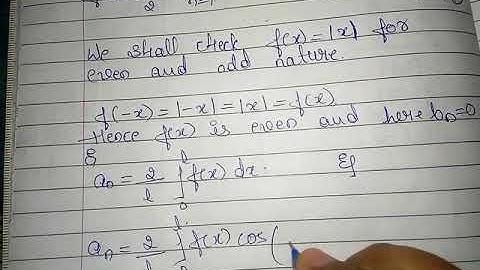 2
We shall check f(x) = |x| for
even and add nature.
f(-x) = |-x| = |x| = f(x)
Hence f(x) is even and here bn=0
&
a0 = 2/l ∫0^l f(x) dx. &
an = 2/l ∫0^l f(x) cos (